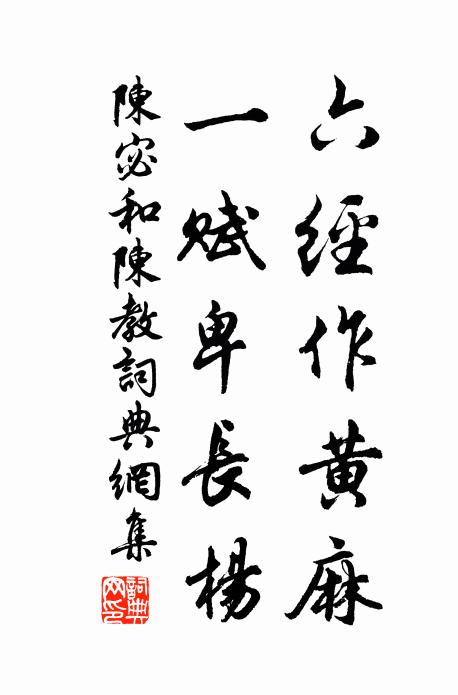 六經作黄麻
一賦卑長楊
陳宓和陳教詞典網集
詞典網印